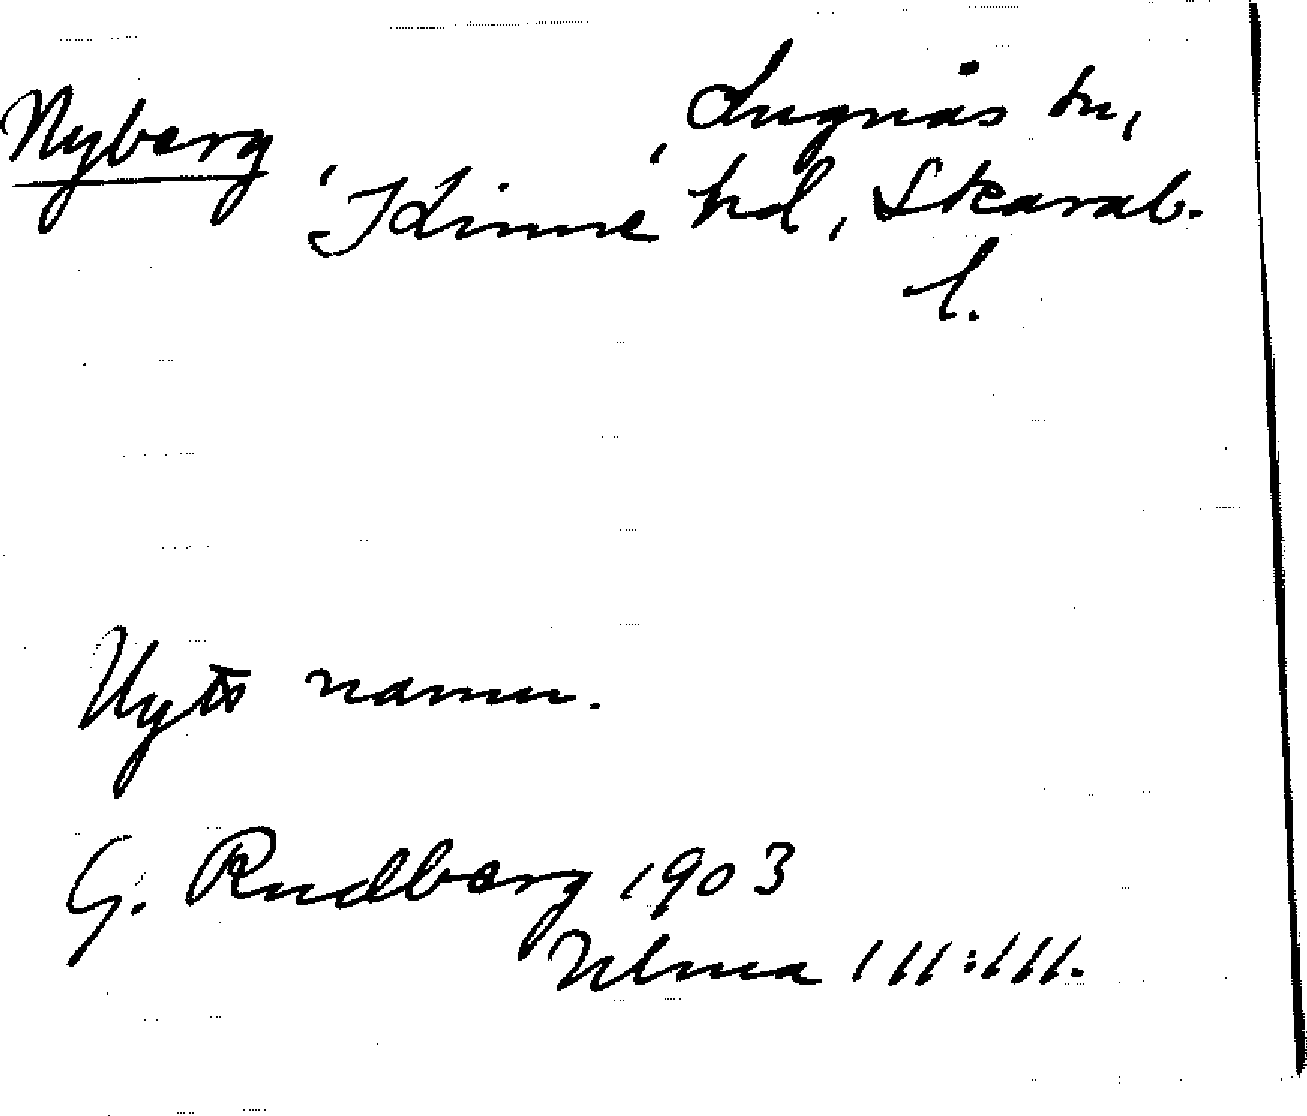 Nyberg, Lugnås sn,
Kinne hd, Skarab.
l.
Nytt namn.
G. Rudberg 1903
Ulma 111:111.